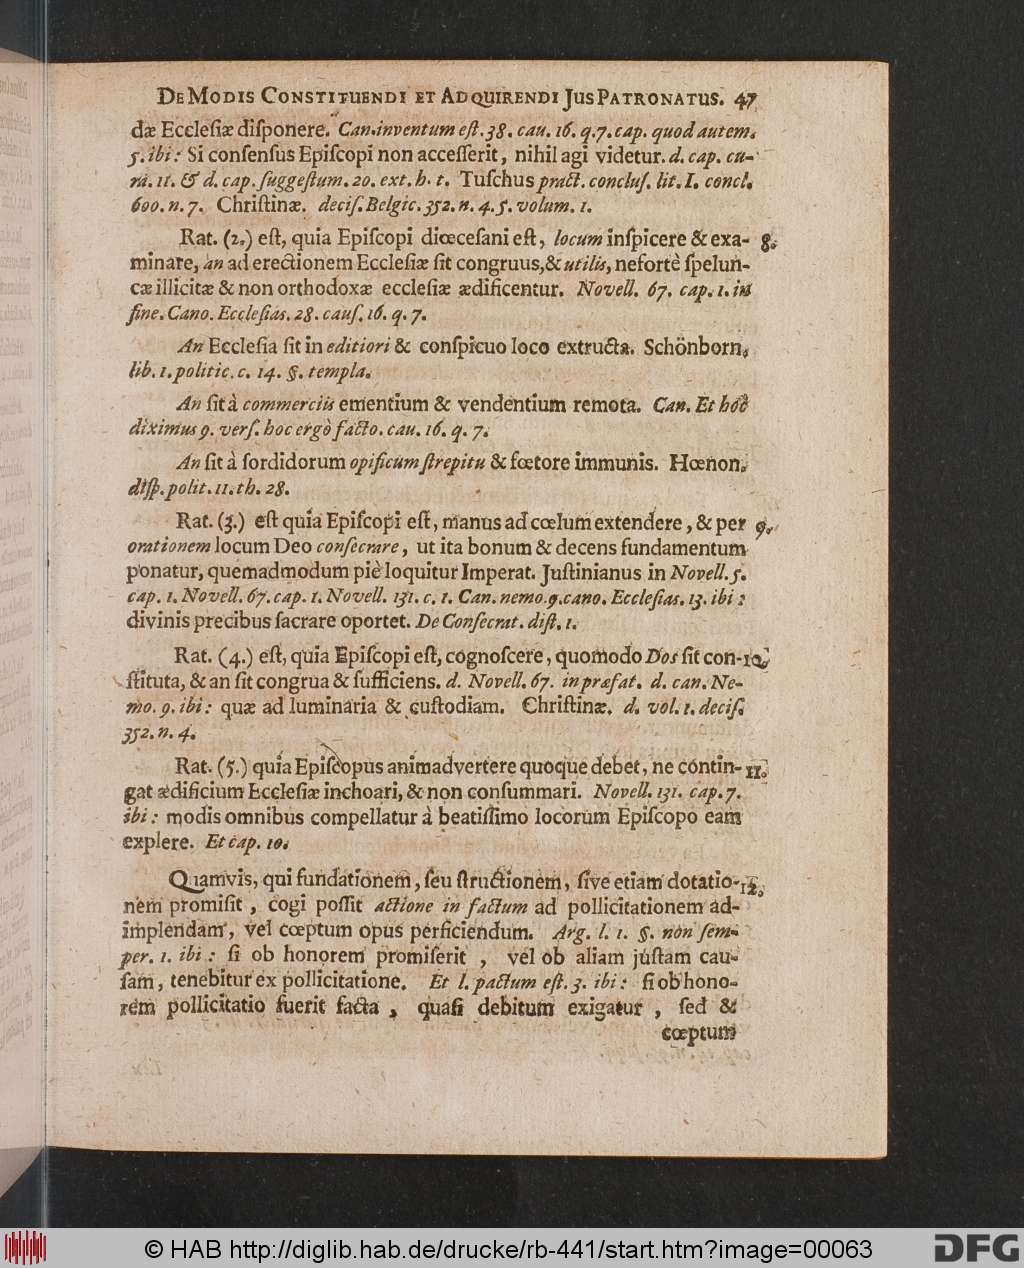 De Modis Constituendi et Adquirendi Jus Patronatus. 47
dæ Eccleſiæ diſponere. Can. inventum eſt. 38. cau. 16. q. 7. cap. quod autem.
5. ibi: Si conſenſus Epiſcopi non acceſſerit, nihil agi videtur. d. cap. cu-
râ. 11. & d. cap. ſuggeſtum. 20. ext. h. t. Tuſchus pract. concluſ. lit. I. concl.
600. n. 7. Chriſtinæ. deciſ. Belgic. 352. n. 4. 5. volum. 1.
Rat. (2.) eſt, quia Epiſcopi diœceſani eſt, locum inſpicere & exa- 8.
minare, an ad erectionem Eccleſiæ ſit congruus, & utilis, ne fortè ſpelun-
cæ illicitæ & non orthodoxæ eccleſiæ ædificentur. Novell. 67. cap. 1. in
fine. Cano. Eccleſias. 28. cauſ. 16. q. 7.
An Eccleſia ſit in editiori & conſpicuo loco extructa. Schönborn.
lib. 1. politic. c. 14. §. templa.
An ſit à commerciis ementium & vendentium remota. Can. Et hoc
diximus 9. verſ. hoc ergò facto. cau. 16. q. 7.
An ſit à ſordidorum opificum ſtrepitu & fœtore immunis. Hœnon.
diſp. polit. 11. th. 28.
Rat. (3.) eſt quia Epiſcopi eſt, manus ad cœlum extendere, & per 9.
orationem locum Deo conſecrare, ut ita bonum & decens fundamentum
ponatur, quemadmodum piè loquitur Imperat. Juſtinianus in Novell. 5.
cap. 1. Novell. 67. cap. 1. Novell. 131. c. 1. Can. nemo. 9. cano. Eccleſias. 13. ibi:
divinis precibus ſacrare oportet. De Conſecrat. diſt. 1.
Rat. (4.) eſt, quia Epiſcopi eſt, cognoſcere, quomodo Dos ſit con- 10.
ſtituta, & an ſit congrua & ſufficiens. d. Novell. 67. in præfat. d. can. Ne-
mo. 9. ibi: quæ ad luminaria & cuſtodiam. Chriſtinæ. d. vol. 1. deciſ.
352. n. 4.
Rat. (5.) quia Epiſcopus animadvertere quoque debet, ne contin- 11.
gat ædificium Eccleſiæ inchoari, & non conſummari. Novell. 131. cap. 7.
ibi: modis omnibus compellatur à beatiſſimo locorum Epiſcopo eam
explere. Et cap. 10.
Quamvis, qui fundationem, ſeu ſtructionem, ſive etiam dotatio- 12.
nem promiſit, cogi poſſit actione in factum ad pollicitationem ad-
implendam, vel cœptum opus perficiendum. Arg. l. 1. §. non ſem-
per. 1. ibi: ſi ob honorem promiſerit, vel ob aliam juſtam cau-
ſam, tenebitur ex pollicitatione. Et l. pactum eſt. 3. ibi: ſi ob hono-
rem pollicitatio fuerit facta, quaſi debitum exigatur, ſed &
cœptum
© HAB http://diglib.hab.de/drucke/rb-441/start.htm?image=00063
DFG